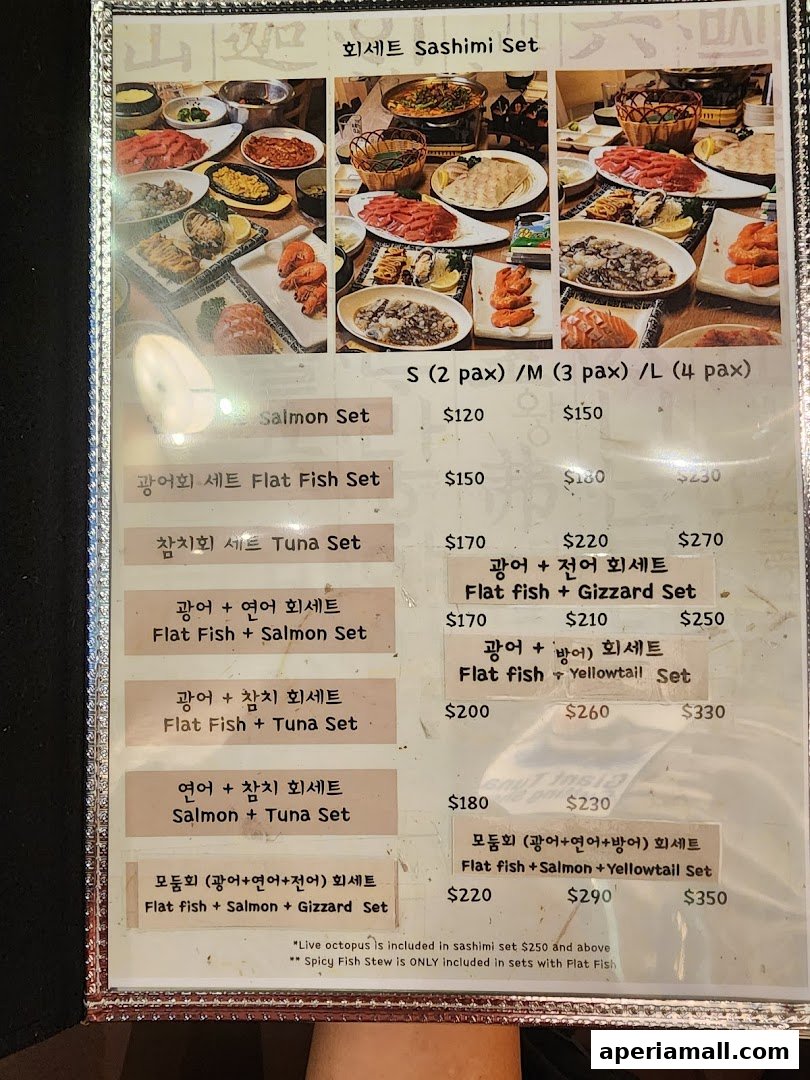 회세트 Sashimi Set
S (2 pax) /M (3 pax) /L (4 pax)
Salmon Set $120 $150
광어회 세트 Flat Fish Set $150 $180 $230
참치회 세트 Tuna Set $170 $220 $270
광어 + 전어 회세트
Flat fish + Gizzard Set
광어 + 연어 회세트
Flat Fish + Salmon Set
$170 $210 $250
광어 + 방어) 회세트
Flat fish + Yellowtail Set
광어 + 참치 회세트
Flat Fish + Tuna Set
$200 $260 $330
연어 + 참치 회세트
Salmon + Tuna Set
$180 $230
모둠회 (광어+연어+방어) 회세트
Flat fish +Salmon +Yellowtail Set
모둠회 (광어+연어+전어) 회세트
Flat fish + Salmon + Gizzard Set
$220 $290 $350
*Live octopus is included in sashimi set $250 and above
** Spicy Fish Stew is ONLY included in sets with Flat Fish
aperiamall.com